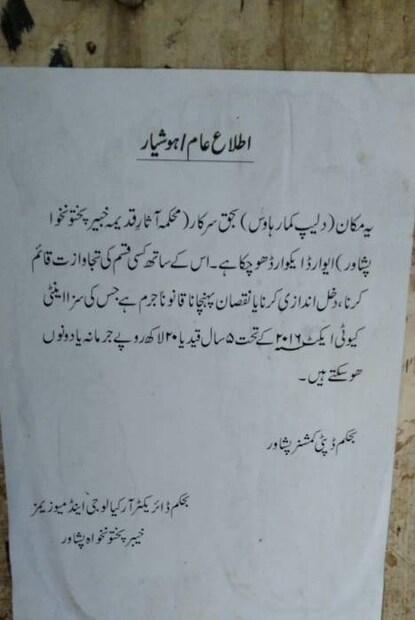 اطلاع عام / ہوشیار
یہ مکان (دلیپ کمار ہاوس) بحق سرکار (محکمہ آثار قدیمہ خیبر پختونخوا
پشاور) ایوارڈ ایکوارڈ ھو چکا ہے۔ اس کے ساتھ کسی قسم کی تجاوازت قائم
کرنا، دخل اندازی کرنا یا نقصان پہنچانا قانونا جرم ہے جس کی سزا اینٹی
کیوٹی ایکٹ ۲۰۱۶ کے تحت ۵ سال قید یا ۲۰ لاکھ روپے جرمانہ یا دونوں
ھو سکتے ہیں۔
بحکم ڈپٹی کمشنر پشاور
بحکم ڈائریکٹر آرکیالوجی اینڈ میوزیمز
خیبر پختونخواہ پشاور